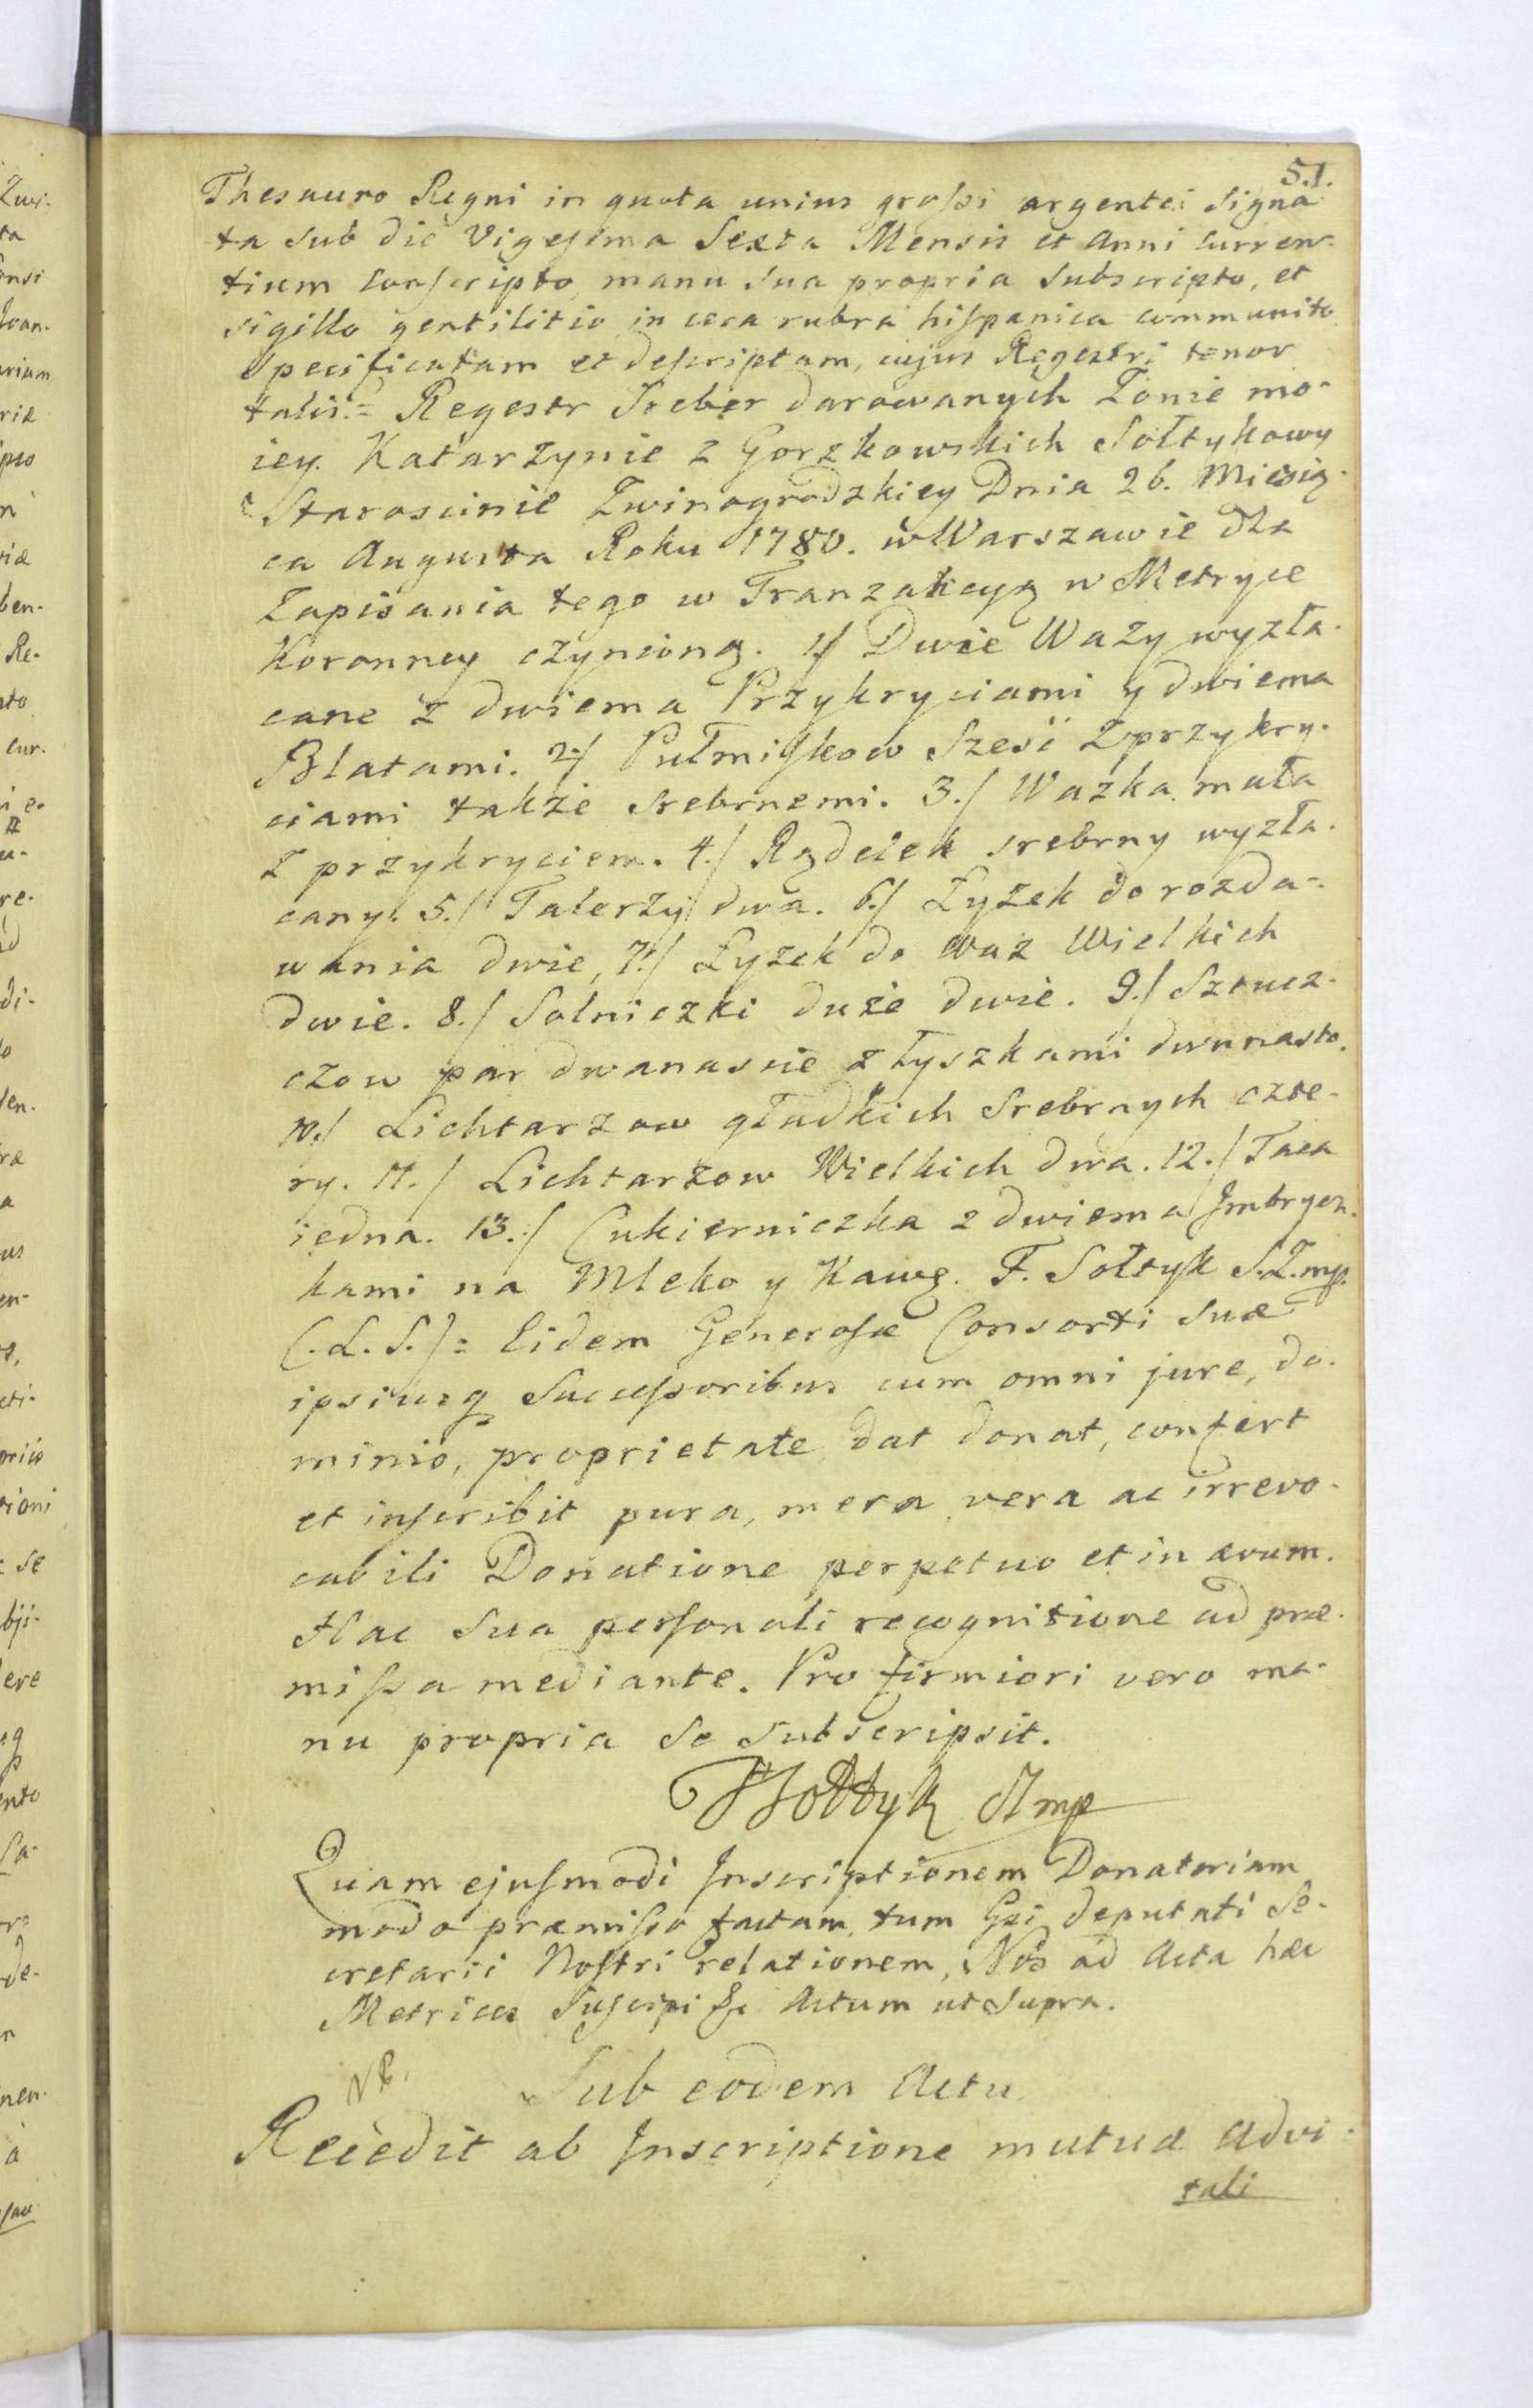 51.
Thesauro Regni in quota unius grossi argentei signa-
ta sub die Vigesima Sexta Mensis et Anni curren-
tium conscripto, manu sua propria subscripto, et
sigillo gentilitio in cera rubra hispanica communito
specificatam et descriptam, cujus Regestri tenor
talis.= Regestr Sreber darowanych Zonie mo-
iey. Katarzynie z Gorzkowskich Sołtykowy
Staroscinie Zwinogrodzkiey Dnia 26. Miesią-
ca Augusta Roku 1780. w Warszawie dla
Zapisania tego w Tranzakcyą w Metryce
Koronney czynioną. 1./ Dwie Wazy wyzła-
cane z dwiema Przykryciami y dwiema
Blatami. 2./ Pułmiskow Sześć z przykry-
ciami także srebrnemi. 3./ Wazka mała
z przykryciem. 4./ Rądelek srebrny wyzła-
cany. 5./ Talerzy dwa. 6./ Łyżek do rozda-
wania dwie, 7./ Łyżek do waz Wielkich
dwie. 8./ Solniczki duże dwie. 9./ Sztucz-
czow par dwanascie z łyszkami dwunasto.
10./ Lichtarzow gładkich Srebrnych czte-
ry. 11./ Lichtarzow Wielkich dwa. 12./ Taca
iedna. 13./ Cukierniczka z dwiema Jmbrycz-
kami na Mleko y Kawę. F. Sołtyk S.Z.mp.
(.L.S.)= Eidem Generosæ Consorti suæ
ipsiusq Successoribus cum omni jure, do-
minio, proprietate, dat donat, confert
et inscribit pura, mera vera ac irrevo-
cabili Donatione perpetuo et in ævum.
Hac sua personali recognitione ad præ-
missa mediante. Pro firmiori vero ma-
nu propria se subscripsit.
FSołtyk SZmp
Quam ejusmodi Inscriptionem Donatoriam
modo præmisso factam, tum Gsi deputati Se-
cretarii Nostri relationem, Nos ad Acta hæc
Metrices suscipi Actum ut supra.
NB.
Sub eodem Actu
Recedit ab Inscriptione mutuæ advi-
tali